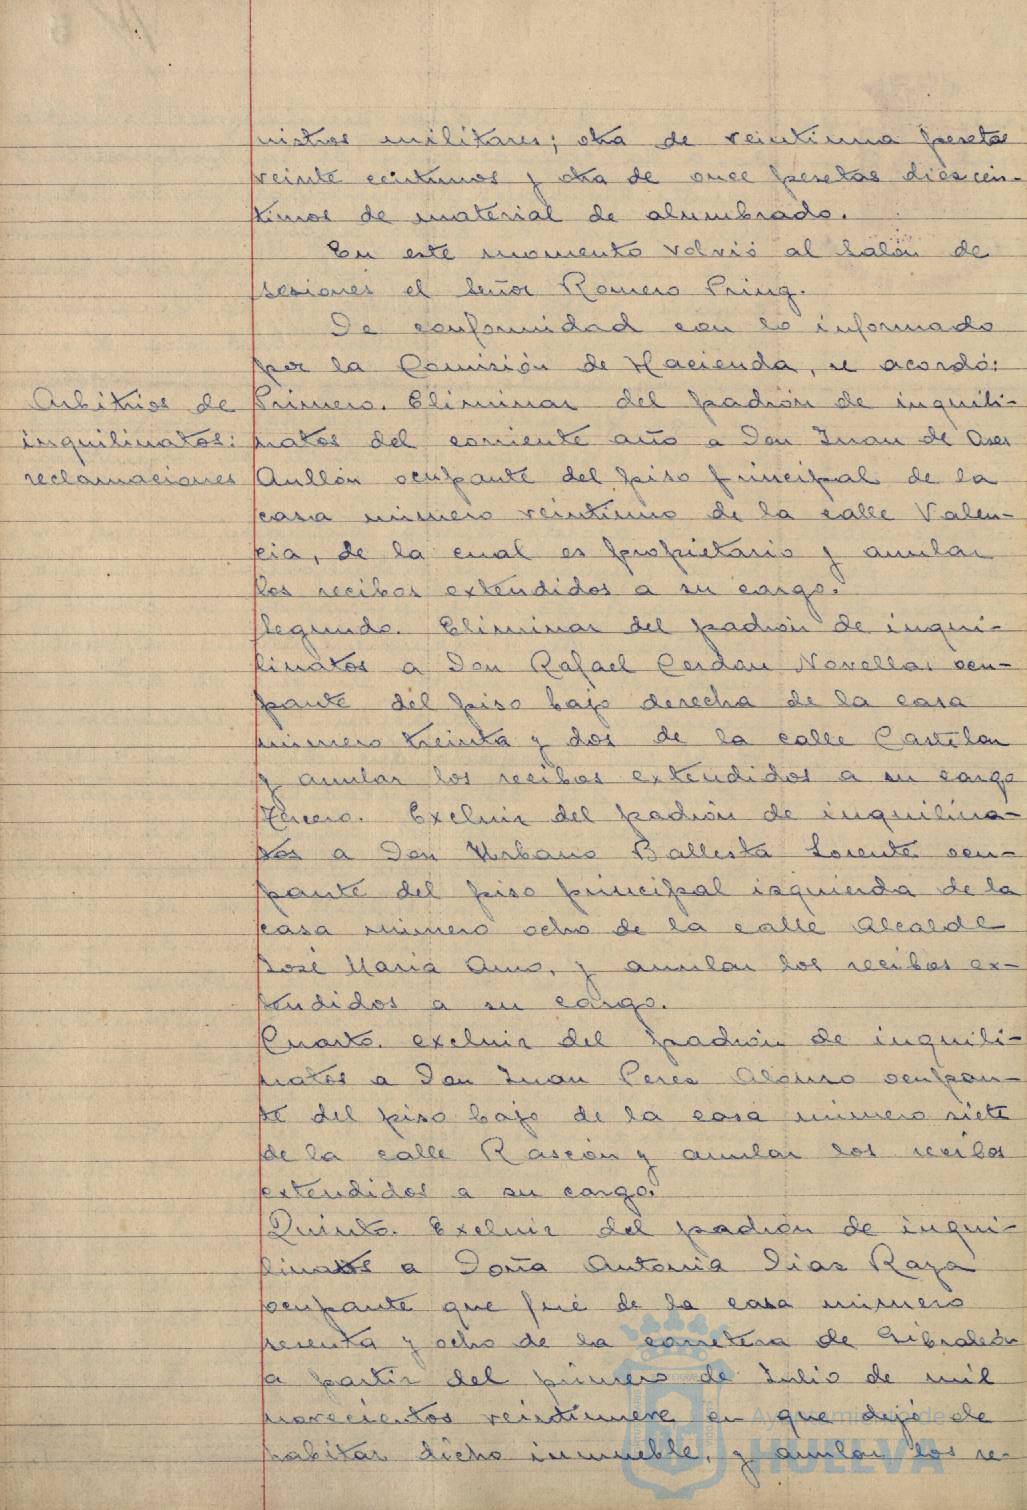 nistros militares; otra de veintiuna pesetas
veinte centimos y otra de once pesetas diez cen-
timos de material de alumbrado.
En este momento volvió al Salón de
sesiones el Señor Romero Pring.
De conformidad con lo informado
por la Comisión de Hacienda, se acordó:
Arbitrios de
inquilinatos:
reclamaciones
Primero. Eliminar del padrón de inquili-
natos del corriente año a Don Juan de Ases
Aullón ocupante del piso principal de la
casa número veintiuno de la calle Valen-
cia, de la cual es propietario y anular
los recibos extendidos a su cargo.
Segundo. Eliminar del padrón de inqui-
linatos a Don Rafael Cerdan Novellas ocu-
pante del piso bajo derecha de la casa
número treinta y dos de la calle Castelar
y anular los recibos extendidos a su cargo
Tercero. Excluir del padrón de inquilina-
tos a Don Urbano Ballesta Lorente ocu-
pante del piso principal izquierda de la
casa número ocho de la calle Alcalde
José María Amo, y anular los recibos ex-
tendidos a su cargo.
Cuarto. excluir del padrón de inquili-
natos a Don Juan Perez Alonso ocupan-
te del piso bajo de la casa número siete
de la calle Rascón y anular los recibos
extendidos a su cargo.
Quinto. Excluir del padrón de inqui-
linatos a Doña Antonia Diaz Raya
ocupante que fué de la casa número
sesenta y ocho de la carretera de Gibraleón
a partir del primero de Julio de mil
novecientos veintinueve en que dejó de
habitar dicho inmueble, y anular los re-
Ayuntamiento de
HUELVA